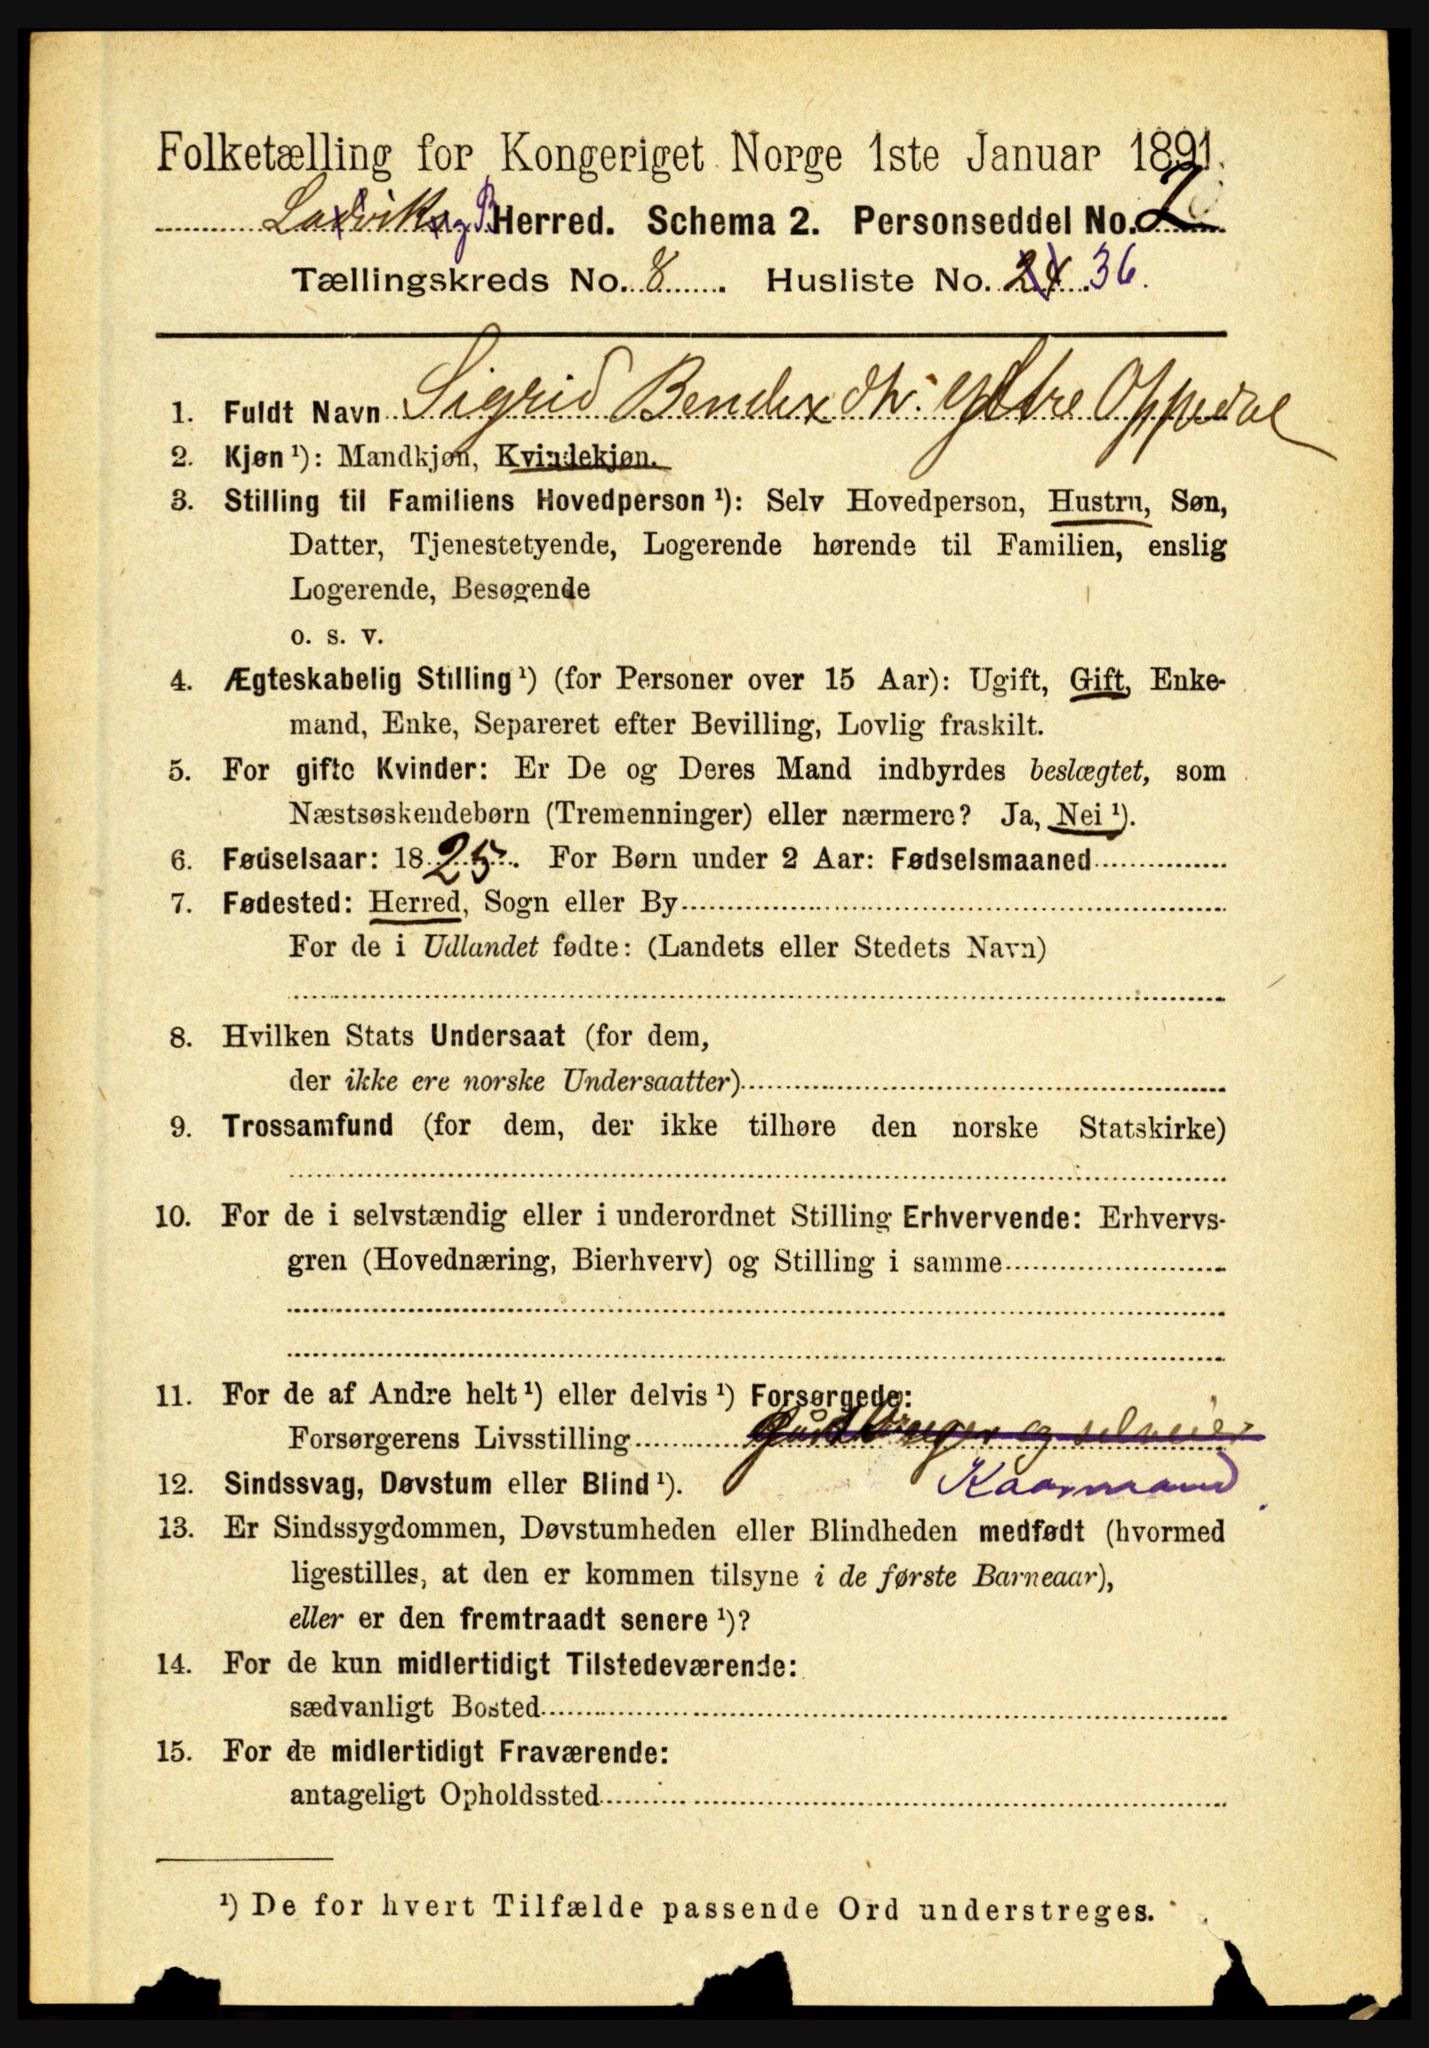 Folketælling for Kongeriget Norge 1ste Januar 1891.
Ladvik og B Herred. Schema 2. Personseddel No. 2
Tællingskreds No. 8. Husliste No. 24 36.
1. Fuldt Navn Sigrid Bendix dtr. Ytre Oppedal
2. Kjøn ¹): Mandkjøn, Kvindekjøn.
3. Stilling til Familiens Hovedperson ¹): Selv Hovedperson, Hustru, Søn,
Datter, Tjenestetyende, Logerende hørende til Familien, enslig
Logerende, Besøgende
o. s. v.
4. Ægteskabelig Stilling ¹) (for Personer over 15 Aar): Ugift, Gift, Enke-
mand, Enke, Separeret efter Bevilling, Lovlig fraskilt.
5. For gifte Kvinder: Er De og Deres Mand indbyrdes beslægtet, som
Næstsøskendebørn (Tremenninger) eller nærmere? Ja, Nei ¹).
6. Fødselsaar: 1825. For Børn under 2 Aar: Fødselsmaaned
7. Fødested: Herred, Sogn eller By
For de i Udlandet fødte: (Landets eller Stedets Navn)
8. Hvilken Stats Undersaat (for dem,
der ikke ere norske Undersaatter)
9. Trossamfund (for dem, der ikke tilhøre den norske Statskirke)
10. For de i selvstændig eller i underordnet Stilling Erhvervende: Erhvervs-
gren (Hovednæring, Bierhverv) og Stilling i samme
11. For de af Andre helt ¹) eller delvis ¹) Forsørgede:
Forsørgerens Livsstilling Gårdbruger og selveier
12. Sindssvag, Døvstum eller Blind ¹). Kaarmand
13. Er Sindssygdommen, Døvstumheden eller Blindheden medfødt (hvormed
ligestilles, at den er kommen tilsyne i de første Barneaar),
eller er den fremtraadt senere ¹)?
14. For de kun midlertidigt Tilstedeværende:
sædvanligt Bosted
15. For de midlertidigt Fraværende:
antageligt Opholdssted
¹) De for hvert Tilfælde passende Ord understreges.